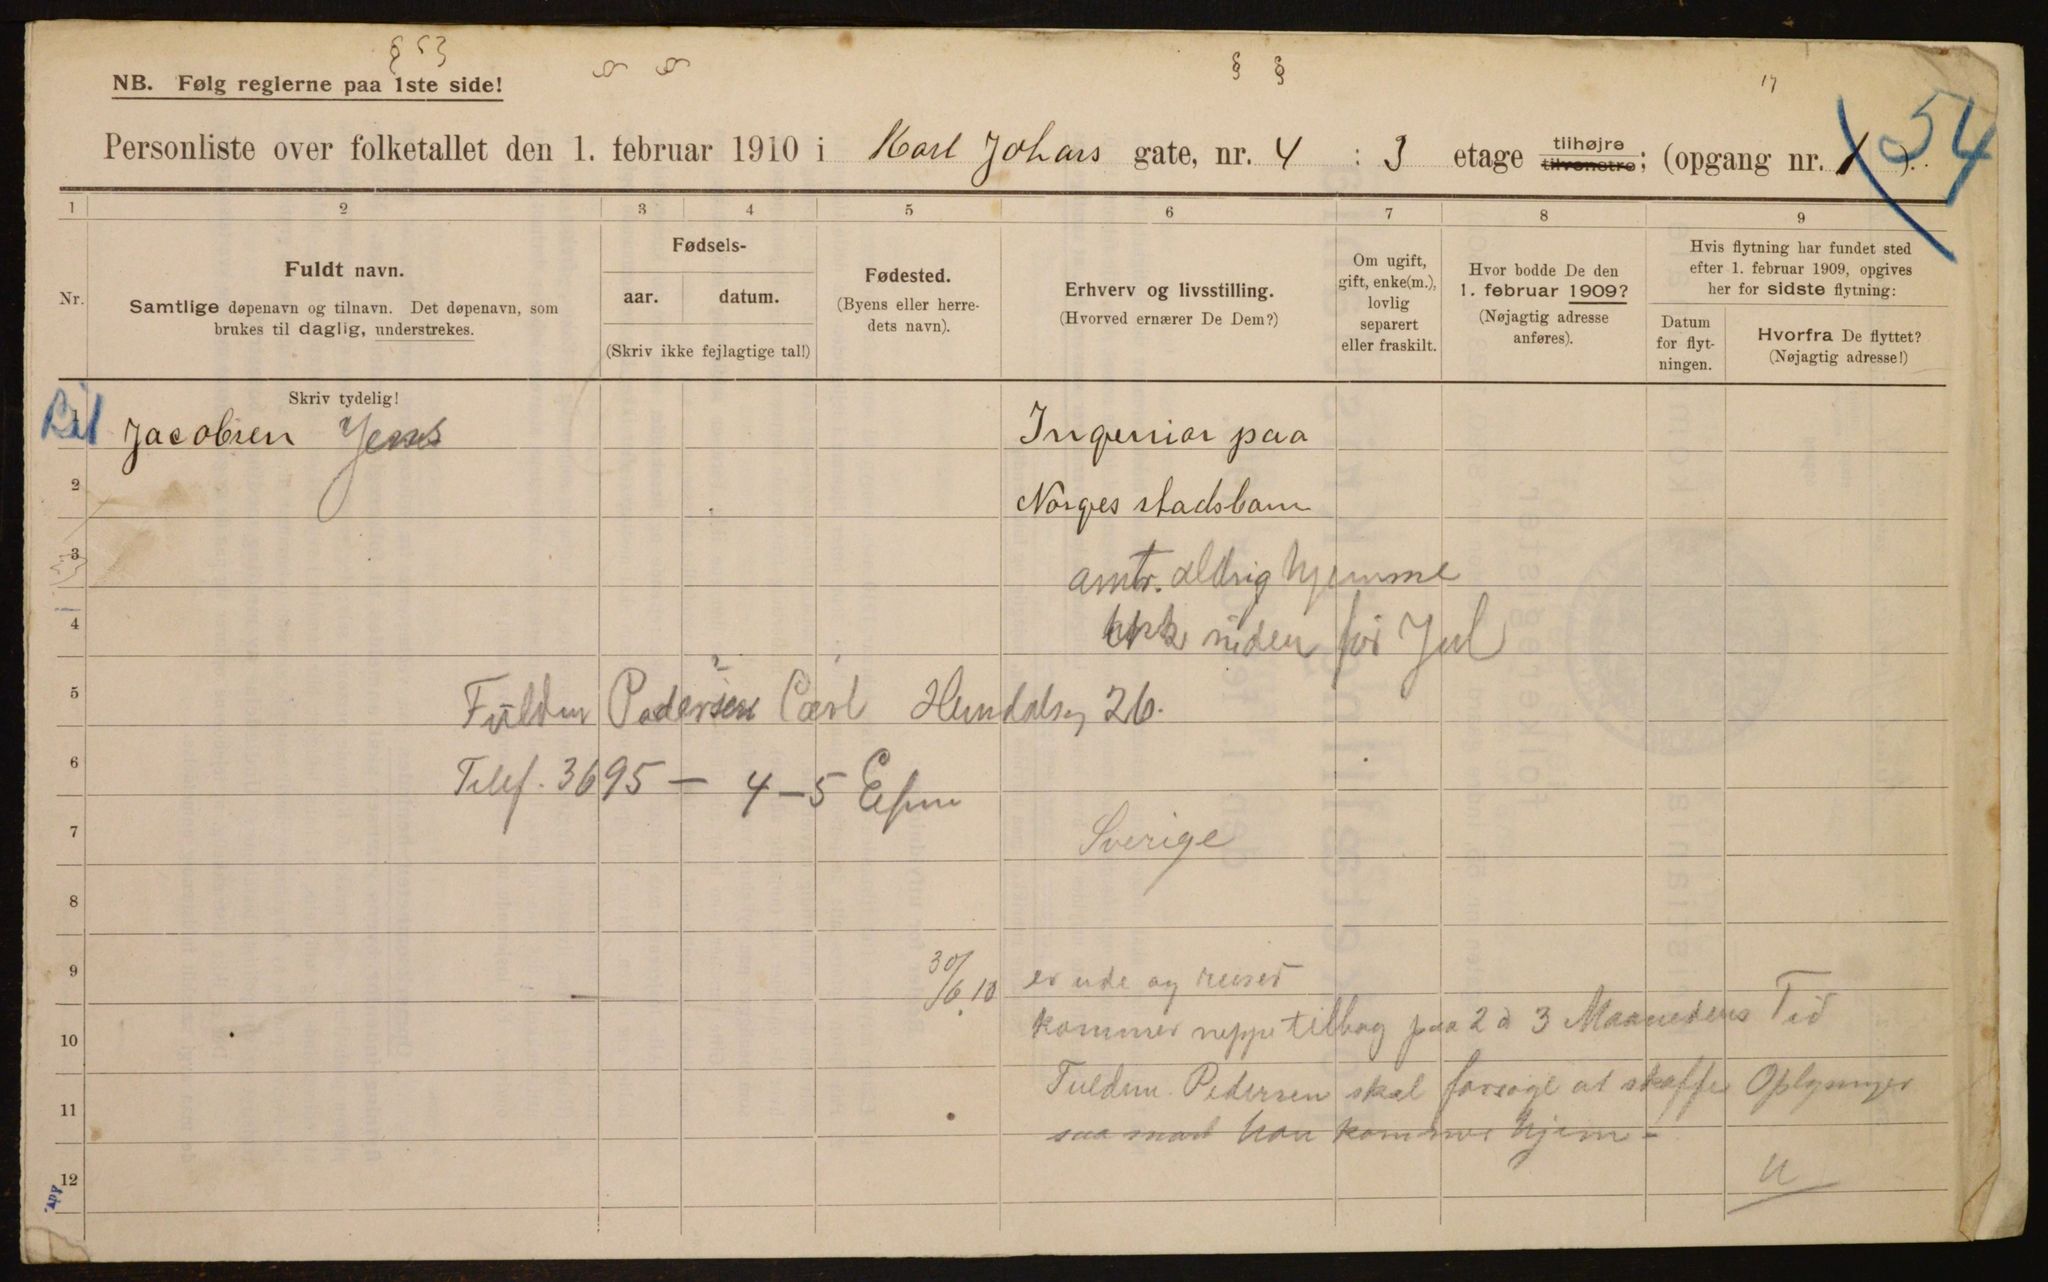 § 53
§ §
NB. Følg reglerne paa 1ste side!
17
54
Personliste over folketallet den 1. februar 1910 i Karl Johans gate, nr. 4 : 3 etage tilhøjre tilvenstre; (opgang nr. 1).
1 2 3 4 5 6 7 8 9
Nr.
Fuldt navn.
Samtlige døpenavn og tilnavn. Det døpenavn, som
brukes til daglig, understrekes.
Fødsels-
aar. datum.
(Skriv ikke fejlagtige tal!)
Fødested.
(Byens eller herre-
dets navn).
Erhverv og livsstilling.
(Hvorved ernærer De Dem?)
Om ugift,
gift, enke(m.),
lovlig
separert
eller fraskilt.
Hvor bodde De den
1. februar 1909?
(Nøjagtig adresse
anføres).
Hvis flytning har fundet sted
efter 1. februar 1909, opgives
her for sidste flytning:
Datum
for flyt-
ningen.
Hvorfra De flyttet?
(Nøjagtig adresse!)
Skriv tydelig!
1 Jacobsen Jens Ingeniør paa
2 Norges stadsbam
3 amtr. aldrig hjemme
4 siden før Jul
5 Fuldm Pedersen Carl 26.
6 Telef. 3695 - 4-5 Efm
7 Sverige
8
9 30/6 10 er ude og reiser
10 kommer neppe tilbag paa 2 a 3 Maaneders Tid
11 Fuldm. Pedersen skal forsøge at skaffe Oplysninger
saa snart han kommer hjem -
12